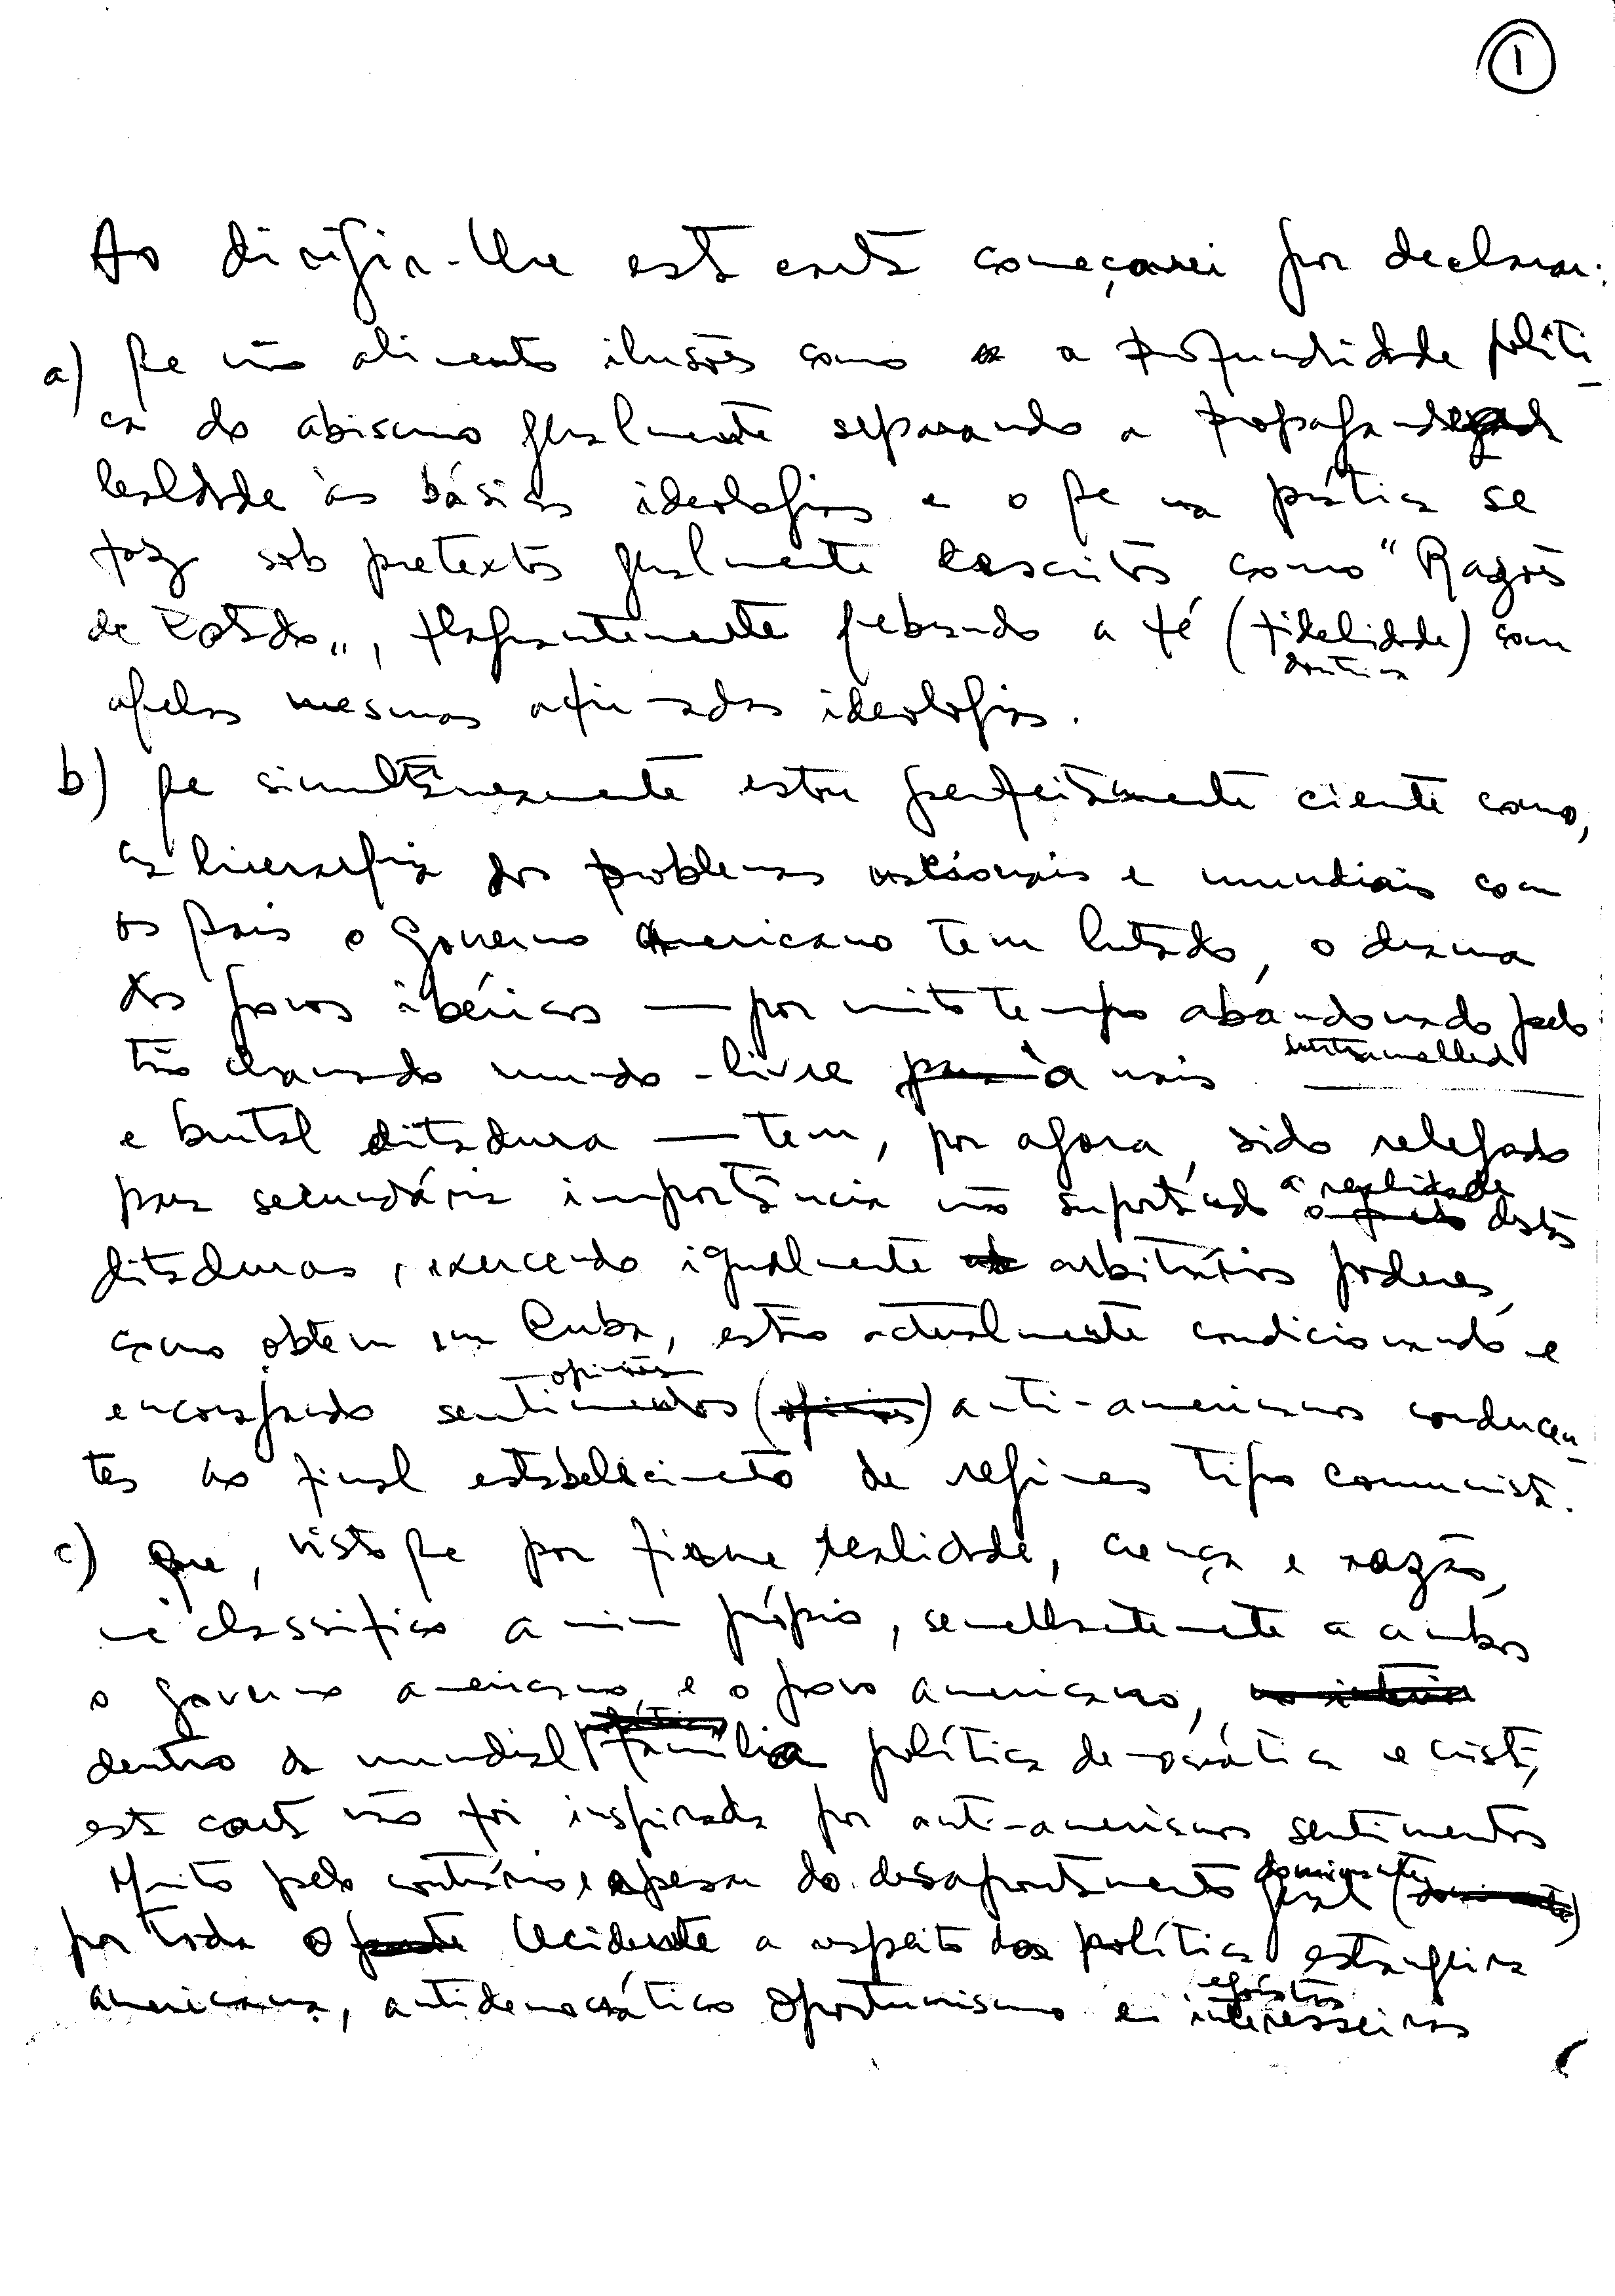 1
Ao dirigir-lhe esta carta começarei por declarar:
a) Que não alimento ilusões como a profundidade políti-
ca do abismo geralmente separando a propagandeada
lealdade às básicas ideologias e o que na prática se
faz sob pretextos geralmente descritos como "Razões
de Estado", flagrantemente quebrando a fé (fidelidade) com
doutrina
aquelas mesmas afirmadas ideologias.
b) Que simultâneamente estou perfeitamente ciente como,
na hierarquia dos problemas nacionais e mundiais com
os quais o governo Americano tem lutado, o drama
dos povos ibéricos — por muito tempo abandonado pelo
untramelled
tão chamado mundo-livre à mais
e brutal ditadura — tem, por agora, sido relegado
a realidade
para secundária importância não suportando destas
ditaduras, exercendo igualmente arbitrários poderes,
como obtem em Cuba, estão actualmente condicionando e
opiniões
encorajando sentimentos (opiniões) anti-americanos conducen-
tes ao final estabelecimento de regimes tipo comunista.
c) Que, visto que por firme realidade, crença e razão,
me classifico a mim próprio, semelhantemente a ambos
o governo americano e o povo americano,
dentro da mundial família política democrática e cristã,
esta carta não foi inspirada por anti-americanos sentimentos
dominante
Muito pelo contrário, e apesar do desapontamento geral
por todo o Ocidente a respeito da política estrangeira
egoístas
americana, antidemocrático oportunismo e interesseiros